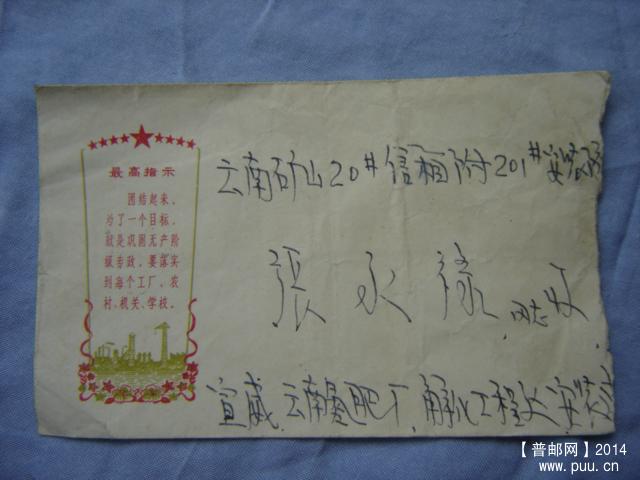 最高指示
团结起来，
为了一个目标，
就是巩固无产阶
级专政，要落实
到每个工厂、农
村、机关、学校。
云南矿山20#信箱附201#安装队
張永禄 同志收
宣威.云南氮肥厂、解化工程大安装
【普邮网】2014
www.puu.cn